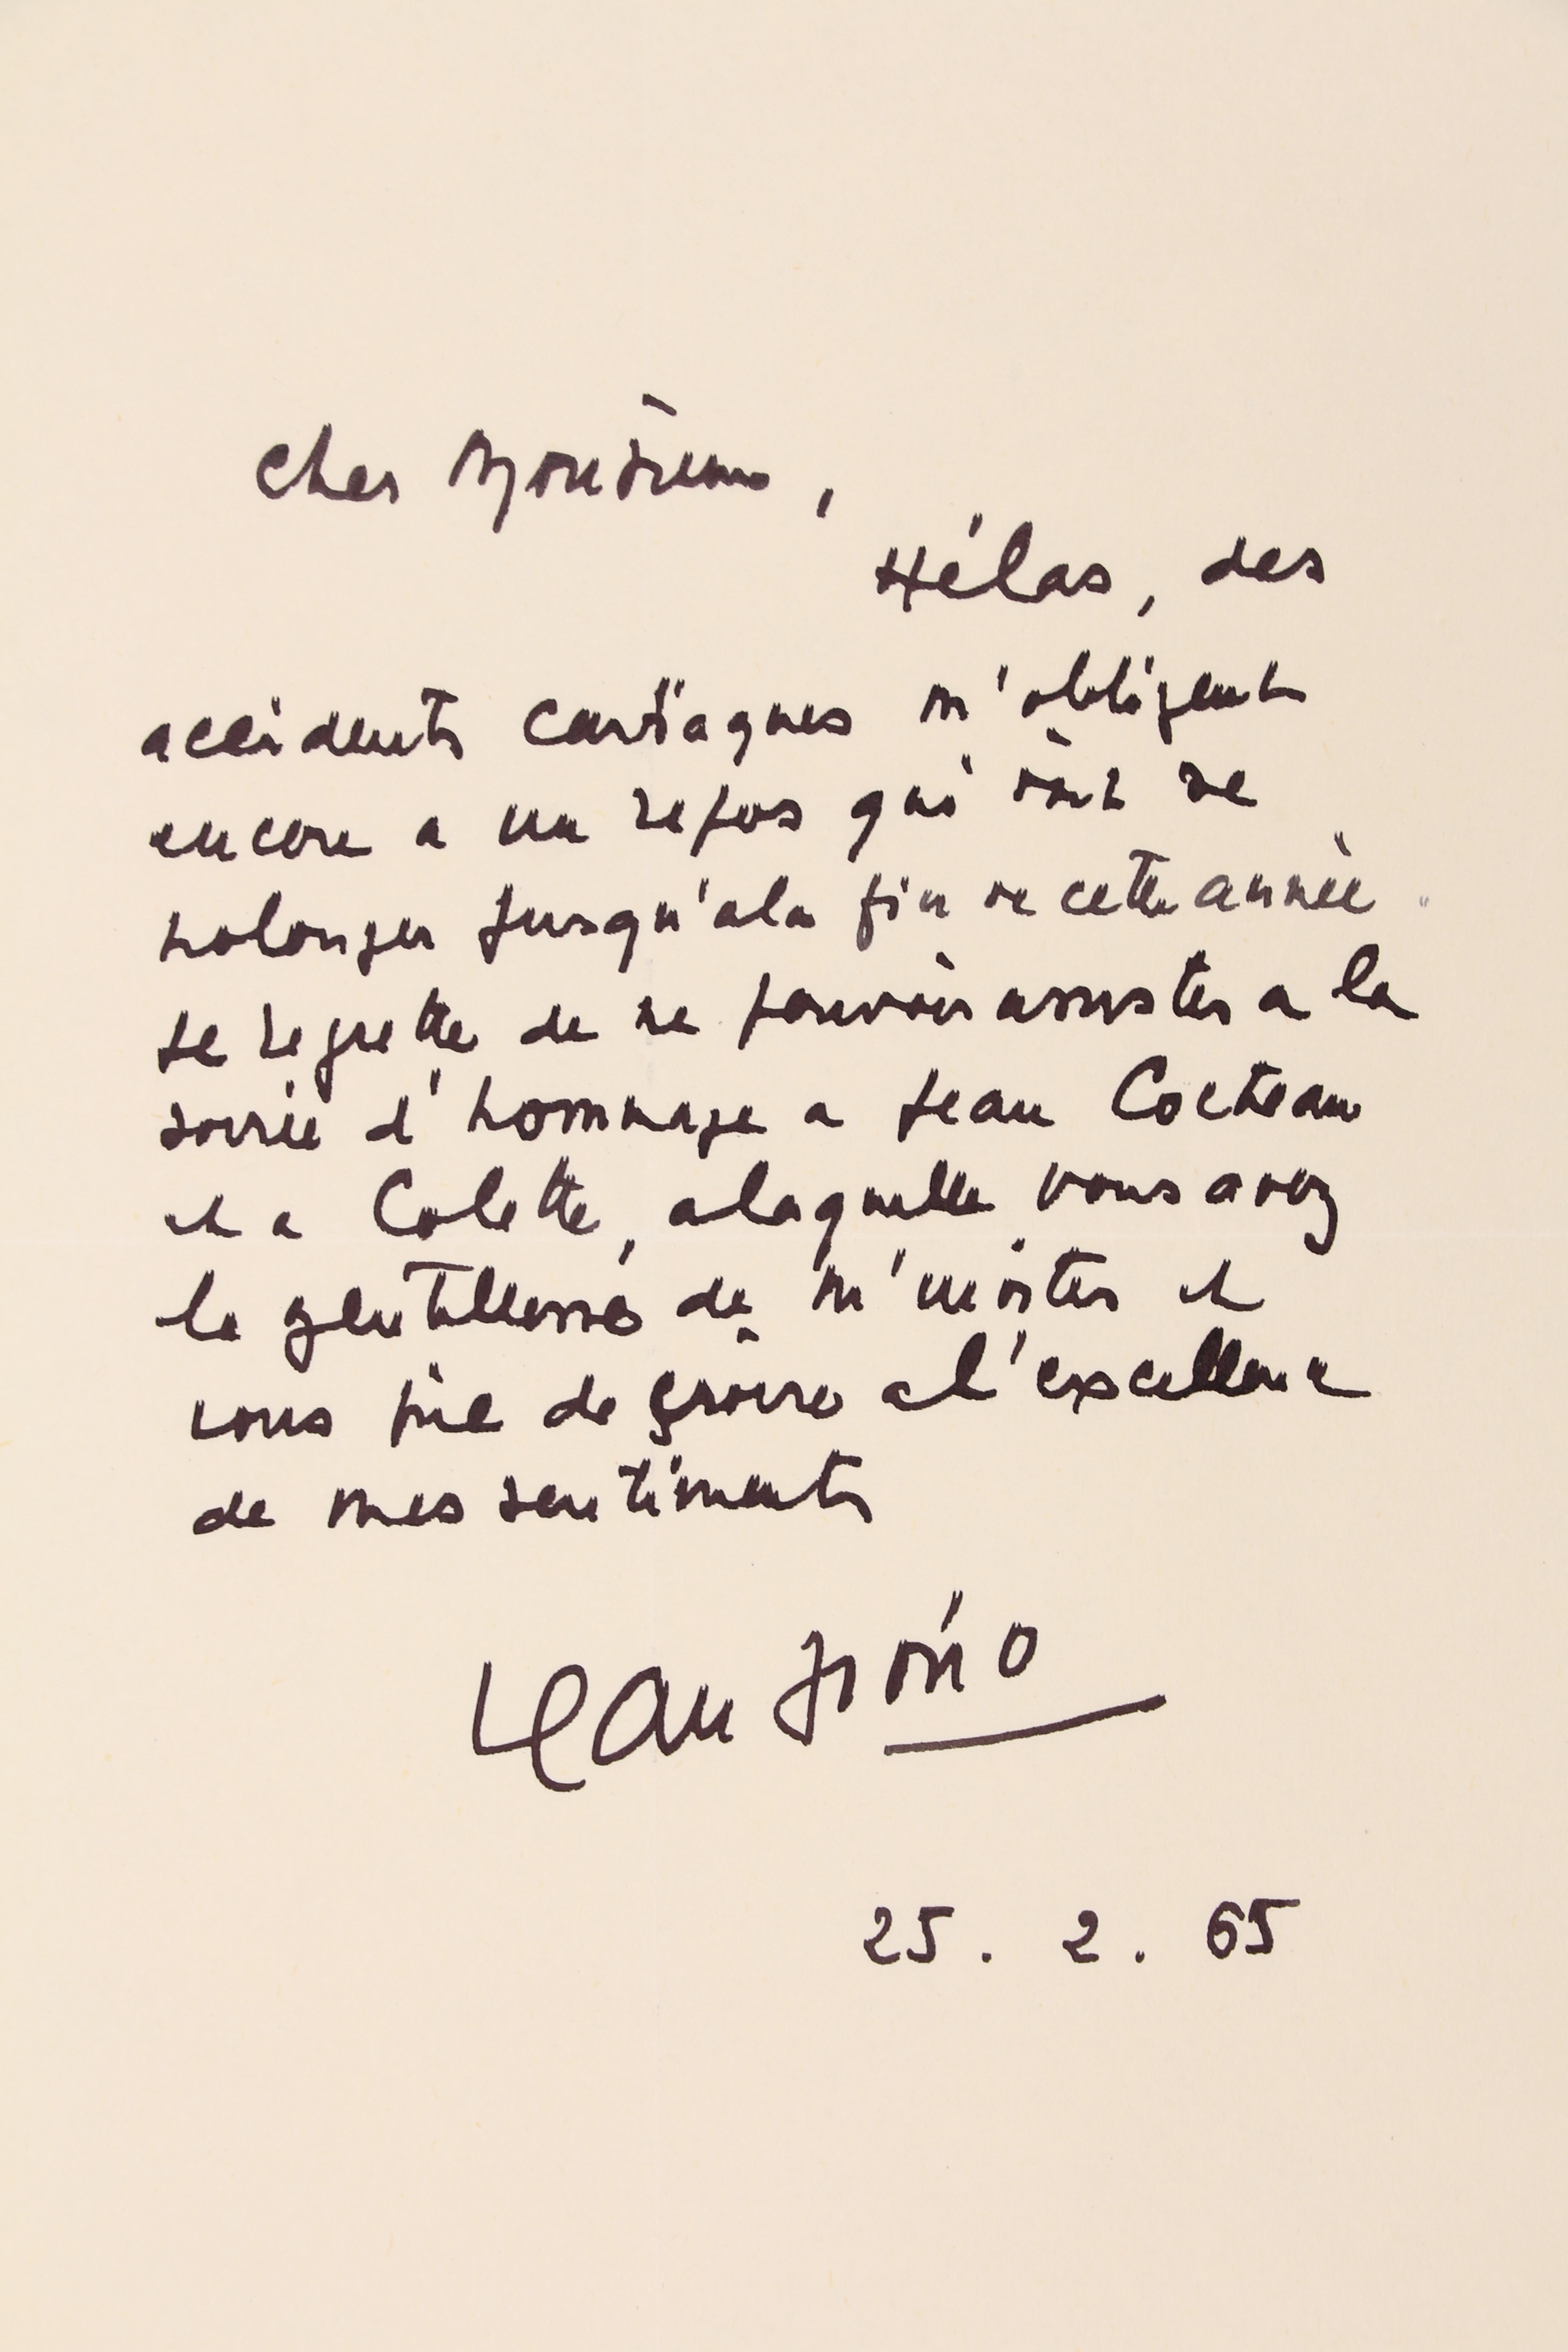 Cher Monsieur,
Hélas, des
accidents cardiaques m'obligent
encore a un repos qui doit se
prolonger jusqu'a la fin de cette année.
Je regrette de ne pouvoir assister a la
soirée d'hommage a Jean Cocteau
et a Colette, a laquelle vous avez
la gentillesse de m'inviter et
vous prie de croire a l'excellence
de mes sentiments
Jean Giono
25. 2. 65